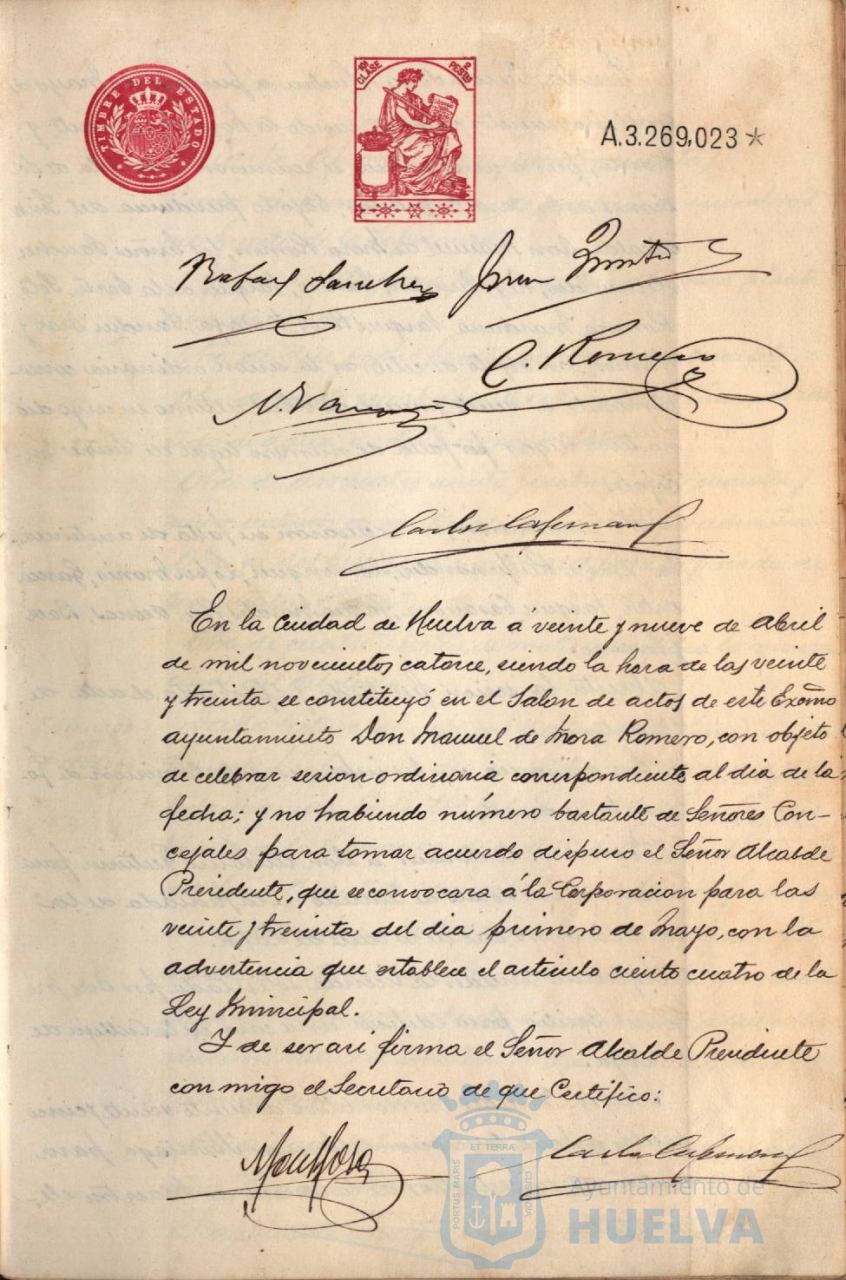 TIMBRE DEL ESTADO
10ª CLASE 2 PESTAS
A.3.269,023*
Rafael Sanchez
C. Romero
En la Ciudad de Huelva á veinte y nueve de Abril
de mil novecientos catorce, siendo la hora de las veinte
y treinta se constituyó en el Salon de actos de este Excmo
ayuntamiento Don Manuel de Mora Romero, con objeto
de celebrar sesion ordinaria correspondiente al dia de la
fecha; y no habiendo número bastante de Señores Con-
cejales para tomar acuerdo dispuso el Señor Alcalde
Presidente, que se convocara á la Corporacion para las
veinte y treinta del dia primero de Mayo, con la
advertencia que establece el articulo ciento cuatro de la
Ley Municipal.
Y de ser asi firma el Señor Alcalde Presidente
con migo el Secretario de que Certifico:
ET TERRA
PORTUS MARIS
CUSTODIA
Ayuntamiento de
HUELVA